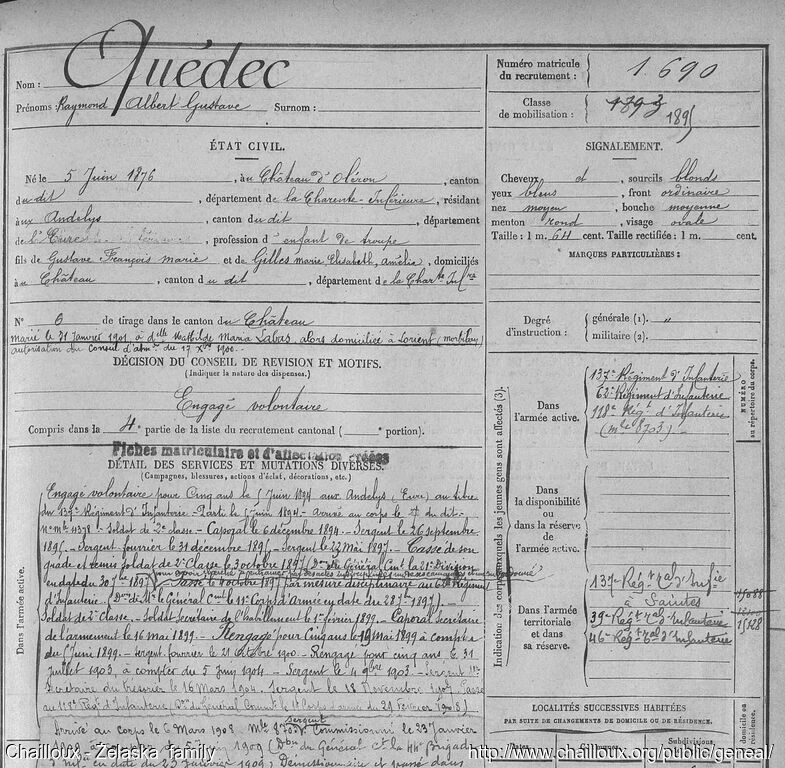 Quédec
Nom :
Prénoms : Raymond Albert Gustave Surnom :
ÉTAT CIVIL.
Né le 5 Juin 1876, à Château d'Oléron, canton
du dit, département de la Charente-Inférieure, résidant
aux Andelys, canton du dit, département
de l'Eure, profession d'enfant de troupe
fils de Gustave François Marie et de Gilles Marie, Elisabeth, Amélie, domiciliés
à Château, canton du dit, département de la Charte Infre
N° 6 de tirage dans le canton du Château
marié le 31 Janvier 1901 à delle Mathilde Maria Labas, alors domiciliée à Lorient (Morbihan)
autorisation du Conseil d'admon du 17 Xbre 1900.
DÉCISION DU CONSEIL DE REVISION ET MOTIFS.
(Indiquer la nature des dispenses.)
Engagé volontaire
Compris dans la 4e partie de la liste du recrutement cantonal ( portion).
Fiches matriculaire et d'affectation créées
DÉTAIL DES SERVICES ET MUTATIONS DIVERSES.
(Campagnes, blessures, actions d'éclat, décorations, etc.)
Dans l'armée active.
Engagé volontaire pour Cinq ans le 5 Juin 1894 aux Andelys (Eure) au titre
du 137e Régiment d'Infanterie - Parti le 5 Juin 1894 - Arrivé au corps le dit -
n° mle 4378 - Soldat de 2e classe - Caporal le 6 décembre 1894 - Sergent le 26 septembre
1895 - Sergent fourrier le 31 décembre 1895 - Sergent le 22 Mai 1897 - Cassé de son
grade et remis soldat de 2e Classe le 3 octobre 1897 (Don du Général Cmt la 21e Division
en date du 30 7bre 1897)
Passé le 4 octobre 1897 par mesure disciplinaire au 62e Régiment
d'Infanterie (Don de Mr le Général Cmt le 11e Corps d'Armée en date du 28 7bre 1897)
Soldat de 2e classe - Soldat Secrétaire de l'habillement le 1er février 1899 - Caporal Secrétaire
de l'armement le 16 mai 1899 - Rengagé pour Cinq ans le 19 Mai 1899 à compter
du 5 Juin 1899 - Sergent fourrier le 21 octobre 1900 - Rengagé pour cinq ans le 31
juillet 1903, à compter du 5 Juin 1904 - Sergent le 4 9bre 1903 - Sergent
Secrétaire du Trésorier le 16 Mars 1904. Sergent le 18 Novembre 1907 Passé
au 118e Régt d'Infanterie (Don du Général Commt le 11e Corps d'armée du 29 Février 1908)
Arrivé au corps le 6 Mars 1908 Mle 8703 Sergent Commissionné le 23 janvier
1909 à 1909 (Don du Général ct la 44e Brigade
d'Infie en date du 23 Janvier 1909)
Numéro matricule
du recrutement : 1.690
Classe
de mobilisation : 1893 1895
SIGNALEMENT.
Cheveux et sourcils blonds
yeux bleus, front ordinaire
nez moyen, bouche moyenne
menton rond, visage ovale
Taille : 1 m. 64 cent. Taille rectifiée : 1 m. cent.
MARQUES PARTICULIÈRES :
Degré
d'instruction :
générale (1).
militaire (2).
Indication des corps auxquels les jeunes gens sont affectés (3).
NUMÉRO
au répertoire du corps.
Dans
l'armée active.
137e Régiment d'Infanterie
62e Régiment d'Infanterie
118e Régt d'Infanterie
(mle 8703)
Dans
la disponibilité
ou dans
la réserve
de
l'armée active.
Dans l'armée
territoriale
et dans
sa réserve.
137e Régt ral d'Infie
à Saintes
39e Régt ral d'Infanterie
46e Régt ral d'Infanterie
LOCALITÉS SUCCESSIVES HABITÉES
PAR SUITE DE CHANGEMENTS DE DOMICILE OU DE RÉSIDENCE.
Dates. Communes. Subdivisions
Chailloux - Zelaska family
http://www.chailloux.org/public/geneal/